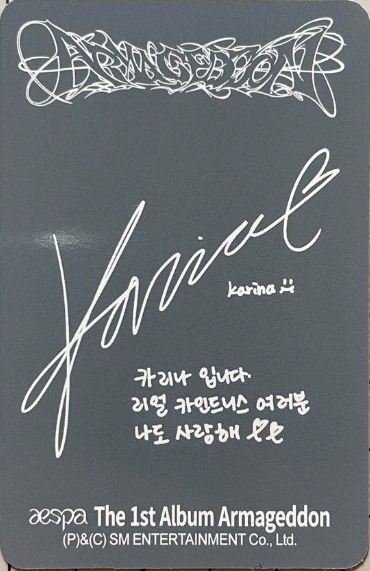 ARMAGEDDON
Karina
karina
카리나 입니다.
리얼 카인드니스 여러분
나도 사랑해
aespa The 1st Album Armageddon
(P)&(C) SM ENTERTAINMENT Co., Ltd.